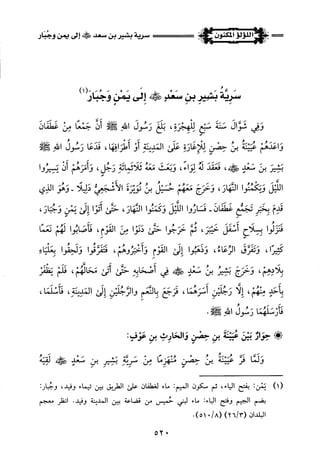 اللؤلؤ المكنون
سرية بشير بن سعد ﷺ إلى يمن وجبار
سَرِيَّةُ بَشِيرِ بنِ سَعْدٍ إلَى يَمْنٍ وَجُبَارٍ (١)
وَفِي شَوَّالَ سَنَةَ سَبْعٍ لِلْهِجْرَةِ، بَلَغَ رَسُولَ اللهِ ﷺ أَنَّ جَمْعًا مِنْ غَطَفَانَ
وَاعَدَهُمْ عُيَيْنَةُ بنُ حِصْنٍ لِلْإِغَارَةِ عَلَى المَدِينَةِ أَوْ أَطْرَافِهَا، فَدَعَا رَسُولُ اللهِ ﷺ
بَشِيرَ بنَ سَعْدٍ، فَعَقَدَ لَهُ لِوَاءً، وَبَعَثَ مَعَهُ ثَلَاثَمِائَةِ رَجُلٍ، وَأَمَرَهُمْ أَنْ يَسِيرُوا
اللَّيْلَ وَيَكْمُنُوا النَّهَارَ، وَخَرَجَ مَعَهُمْ حُسَيْلُ بنُ نُوَيْرَةَ الأَشْجَعِيُّ دَلِيلًا - وَهُوَ الذِي
قَدِمَ بِخَبَرِ تَجَمُّعِ غَطَفَانَ - فَسَارُوا اللَّيْلَ وَكَمَنُوا النَّهَارَ، حَتَّى أَتَوْا إلَى يَمْنٍ وَجُبَارٍ،
فَنَزَلُوا بِسِلَاحِ أَسْفَلَ خَيْبَرَ، ثُمَّ خَرَجُوا حَتَّى دَنَوْا مِنَ القَوْمِ، فَأَصَابُوا لَهُمْ نَعَمًا
كَثِيرًا، وَتَفَرَّقَ الرِّعَاءُ، وَذَهَبُوا إلَى القَوْمِ وَأَخْبَرُوهُمْ، فَتَفَرَّقُوا وَلَحِقُوا بِعَلْيَاءِ
بِلَادِهِمْ، وَخَرَجَ بَشِيرُ بنُ سَعْدٍ فِي أَصْحَابِهِ حَتَّى أَتَى مَحَالَّهُمْ، فَلَمْ يَظْفَرْ
بِأَحَدٍ مِنْهُمْ، إِلَّا رَجُلَيْنِ أَسَرَهُمَا، فَرَجَعَ بِالنَّعَمِ وَالرَّجُلَيْنِ إلَى المَدِينَةِ، فَأَسْلَمَا،
فَأَرْسَلَهُمَا رَسُولُ اللهِ ﷺ.
* حِوَارٌ بَيْنَ عُيَيْنَةَ بنِ حِصْنٍ وَالحَارِثِ بنِ عَوْفٍ:
وَلَمَّا فَرَّ عُيَيْنَةُ بنُ حِصْنٍ مُنْهَزِمًا مِنْ سَرِيَّةِ بَشِيرِ بنِ سَعْدٍ لَقِيَهُ
(١) يَمْن: بفتح الياء، ثم سكون الميم: ماء لغطفان على الطريق بين تيماء وفيد، وجُبار:
بضم الجيم وفتح الباء: ماء لبني خميس من قضاعة بين المدينة وفيد. انظر معجم
البلدان (٢٦/٣) (٥١٠/٨).
٥٢٠